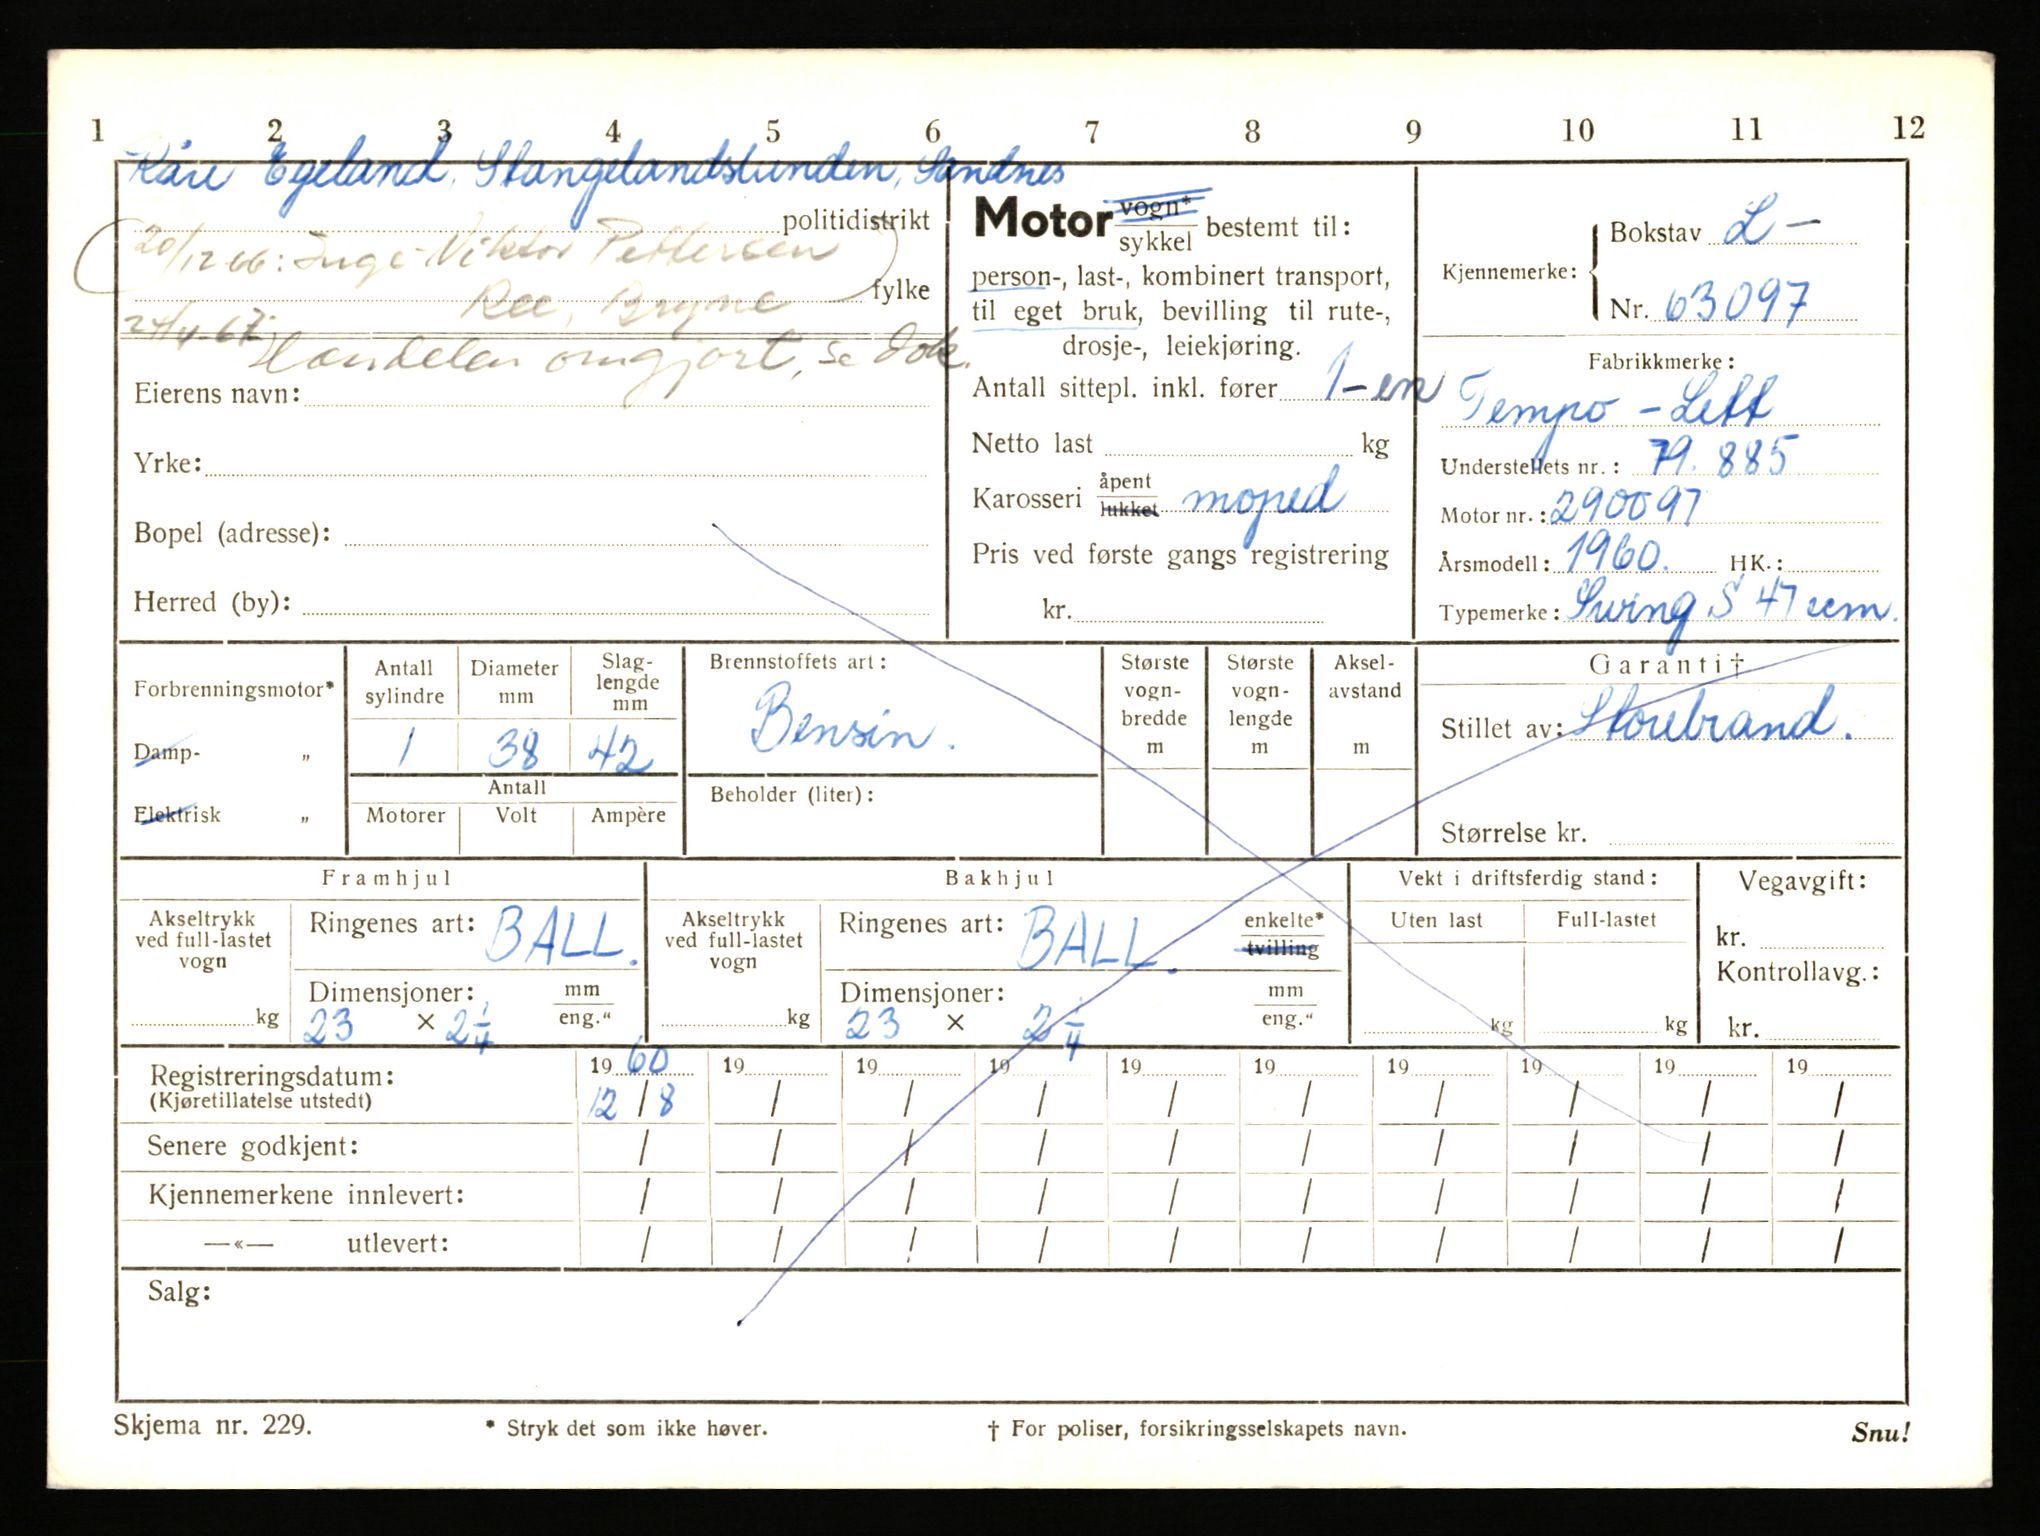 1 2 3 4 5 6 7 8 9 10 11 12
Kåre Egeland, Stangelandslunden, Sandnes
politidistrikt
20/12 66: Inge Viktor Pettersen
fylke
Ree, Bryne
24/4-67:
Handelen omgjort, se dok.
Eierens navn:
Yrke:
Bopel (adresse):
Herred (by):
Motor vogn* sykkel bestemt til:
person-, last-, kombinert transport,
til eget bruk, bevilling til rute-,
drosje-, leiekjøring.
Antall sittepl. inkl. fører 1-en
Netto last kg
Karosseri åpent lukket moped
Pris ved første gangs registrering
kr.
Kjennemerke: Bokstav L -
Nr. 63097
Fabrikkmerke:
Tempo - Lett
Understellets nr.: 79.885
Motor nr.: 290097
Årsmodell: 1960. HK.:
Typemerke: Swing S 47 ccm.
Forbrenningsmotor*
Damp- „
Elektrisk „
Antall sylindre
Diameter mm
Slag-lengde mm
1 38 42
Antall
Motorer Volt Ampère
Brennstoffets art:
Bensin.
Beholder (liter):
Største vogn-bredde m
Største vogn-lengde m
Aksel-avstand m
Garanti†
Stillet av: Storebrand.
Størrelse kr.
Framhjul
Akseltrykk ved full-lastet vogn
kg
Ringenes art: BALL.
Dimensjoner: mm eng.“
23 × 2 1/4
Bakhjul
Akseltrykk ved full-lastet vogn
kg
Ringenes art: BALL. enkelte* tvilling
Dimensjoner: mm eng.“
23 × 2 1/4
Vekt i driftsferdig stand:
Uten last Full-lastet
kg kg
Vegavgift:
kr.
Kontrollavg.:
kr.
Registreringsdatum: 19 60 19 19 19 19 19 19 19 19 19
(Kjøretillatelse utstedt) 12 / 8 / / / / / / / / /
Senere godkjent: / / / / / / / / / /
Kjennemerkene innlevert: / / / / / / / / / /
—«— utlevert: / / / / / / / / / /
Salg:
Skjema nr. 229. * Stryk det som ikke høver. † For poliser, forsikringsselskapets navn. Snu!